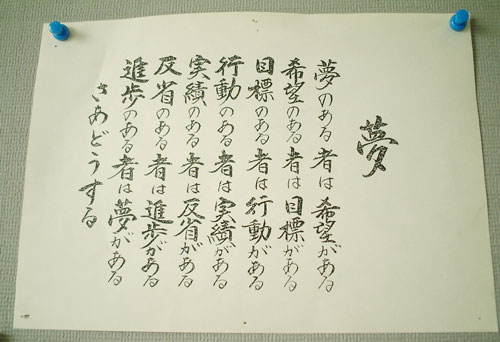 夢
夢のある者は希望がある
希望のある者は目標がある
目標のある者は行動がある
行動のある者は実績がある
実績のある者は反省がある
反省のある者は進歩がある
進歩のある者は夢がある
さあどうする